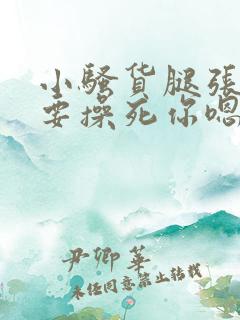 小骚货腿张
要操死你嗯
尹卿华
未经同意禁止转载